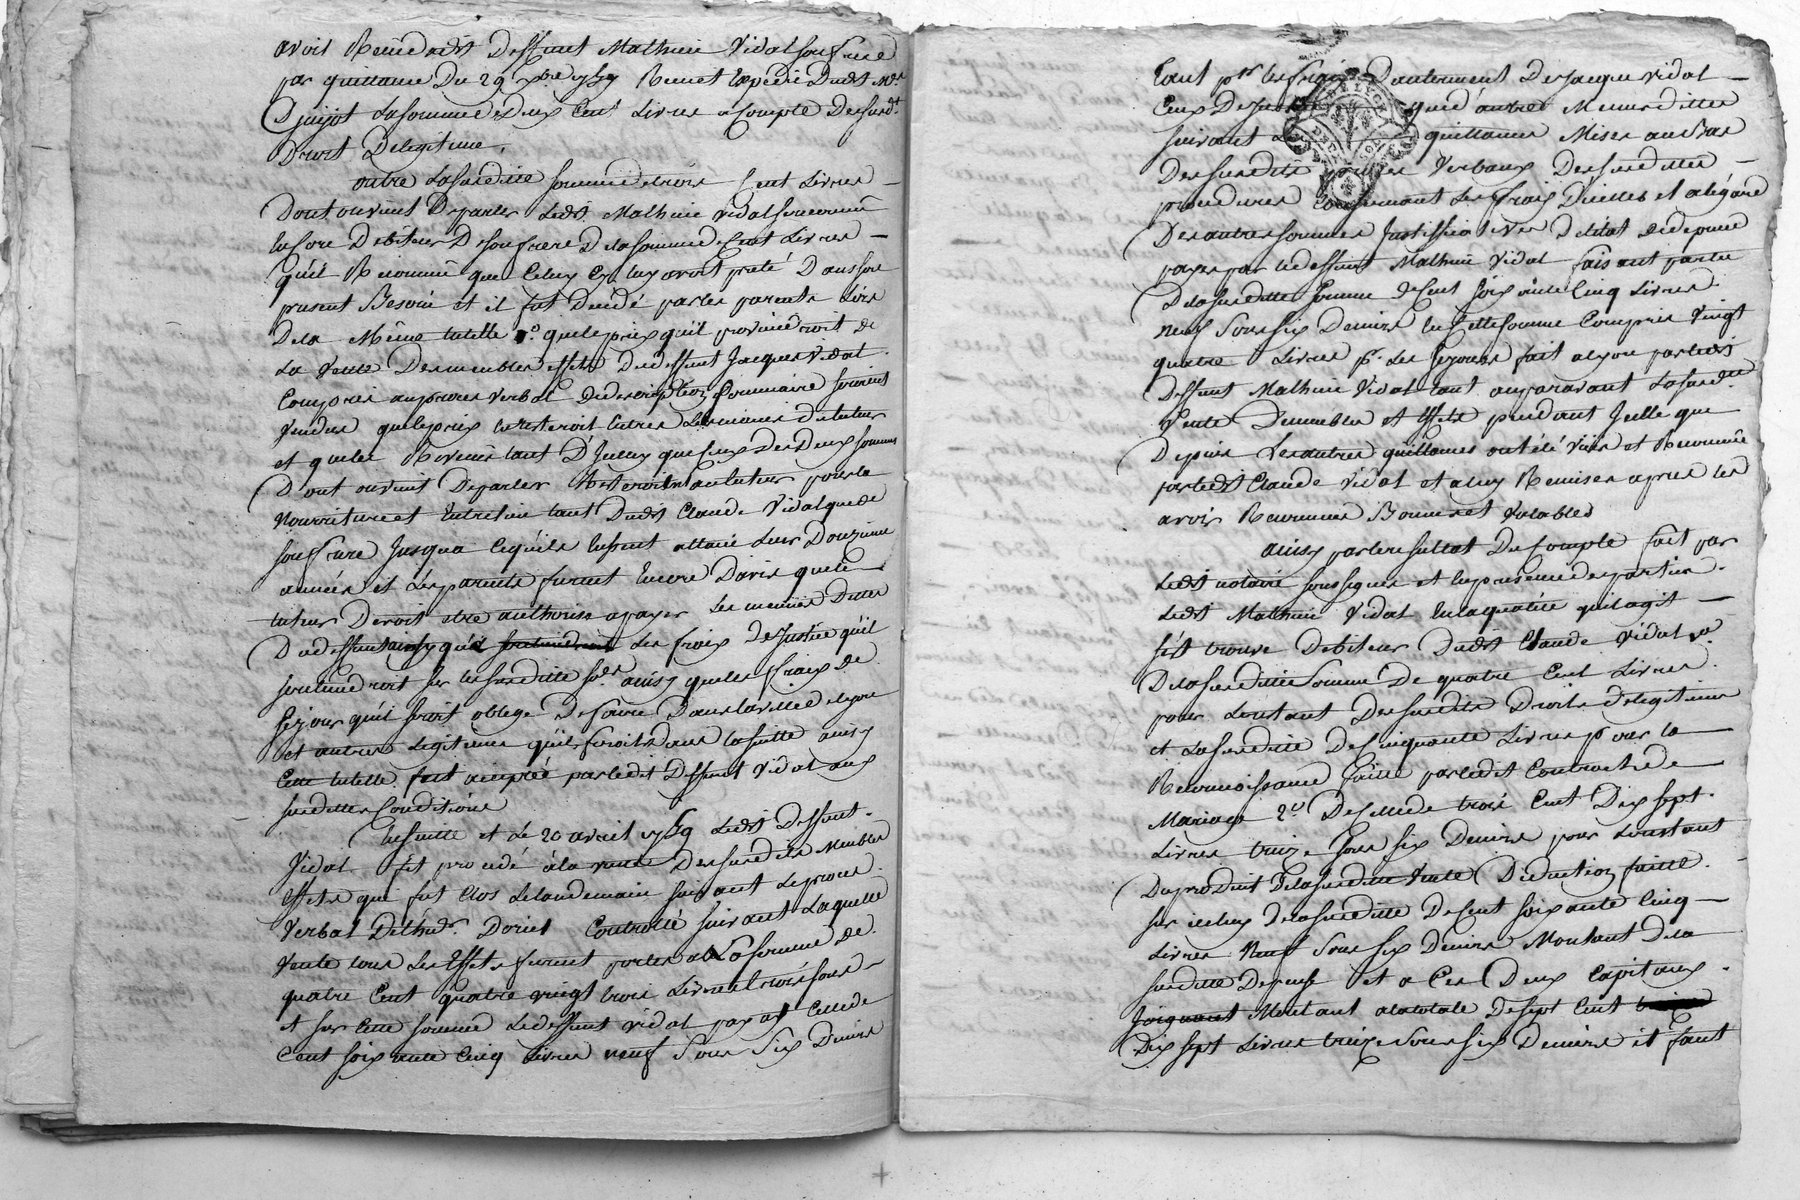 avoit Remis audit Deffunt Mathieu Vidal son frere
par quittance Du 29 xbre 1759 Receu et Expedié Dudt me
Guijot La somme de Deux Cent Livres a Compte Desusdt
Droit De legitime,
outre La susditte somme de trois Cent Livres
Dont on vient De parler Ledit Mathieu vidal fut reconnu
Encore Debiteur De son frere De la somme de Cent Livres
qu'il Reconnu que Celuy Cy luy avoit preté Dans son
present Besoin et il fut Decidé par les parents Lors
De la Même tutelle 1o que le prix qu'il proviendroit de
La Vente Des meubles effets Dudeffunt Jacques Vidal
Compris au proces verbal de description sommaire seroient
Vendus que le prix en resteroit Entre Les mains du tuteur
et que les Revenus tant D'Iceluy que Ceux Des Deux sommes
Dont on vient De parler Resteroit au tuteur pour la
Nourriture et Entretien tant Dudt Claude Vidal que de
son frere Jusqua Cequ'ils Eussent atteint Leur Douzieme
année et Les parents furent Encore D'avis que le
tuteur Devoit etre authorisé a payer Les menües Dettes
Dudeffunt ainsy que Les frois De Justice qu'il
soutiendroit sur les susditte sde ainsy que les fraix de
sejour qu'il seroit oblege De faire Dans la ville de lyon
et autres Legitimes qu'il feroit Dans la suitte ainsy
Cette tutelle fut acceptée par ledit Deffunt Vidal aux
susdittes Conditions
Ensuitte et Le 20 avril 1759 Ledit Deffunt
Vidal fit procedé à la vente Des susdits Meubles
Effets qui fut Clos Le landemain suivant Le proces
Verbal De Doriel Controllé suivant Laquelle
Vente tous Les Effets furent portés a La somme De
quatre Cent quatre vingt trois Livres trois sous
et sur Cette somme Ledeffunt vidal paya Celle de
Cent soixante Cinq Livres neuf Sous Six Deniers
tant pr les frais D'enterrement De Jacques vidal
Ceux De Justice que d'autres Menus dittes
suivant Les quittances Mises au Bas
Des susdits proces Verbaux Des susdittes
procedures Concernant Les frais D'icelles et a l'égard
Des autres sommes Justificatives De l'etat de depense
payés par ledeffunt Mathieu Vidal faisant partie
De la susditte somme de Cent soixante Cinq Livres
neuf Sous Six Deniers En Cette somme Compris Vingt
quatre Livres pr Les sejours fait a lyon par ledt
Deffunt Mathieu Vidal tant auparavant La susditte
Vente De meubles et Effets pendant Icelle que
Depuis Les autres quittances ont été Vües et Reconnües
par ledt Claude Vidal et a luy Remises apres les
avoir Reconnues Bonnes et Valables
ainsy par le resultat Du Compte fait par
Ledt notaire soussigné et En presence des parties
Ledt Mathieu Vidal En la qualité qu'il agit
s'est trouvé Debiteur Dudit Claude Vidal 1o
De la susditte somme De quatre Cent Livres
pour Le restant Des susdits Droits De legitime
et La susditte De Cinquante Livres pour la
Reconnoissance faitte par ledit Contract de
Mariage 2o De Celle de trois Cent Dix sept
Livres treize sous six Deniers pour Le restant
Du produit De la susditte Vente Deduction faitte
sur icelluy De la susditte De Cent soixante Cinq
Livres Neuf Sous Six Deniers Montant De la
susditte Depense et a Ces Deux Capitaux
Joignant Montant a la totale De sept Cent
Dix sept Livres treize Sous six Deniers il faut